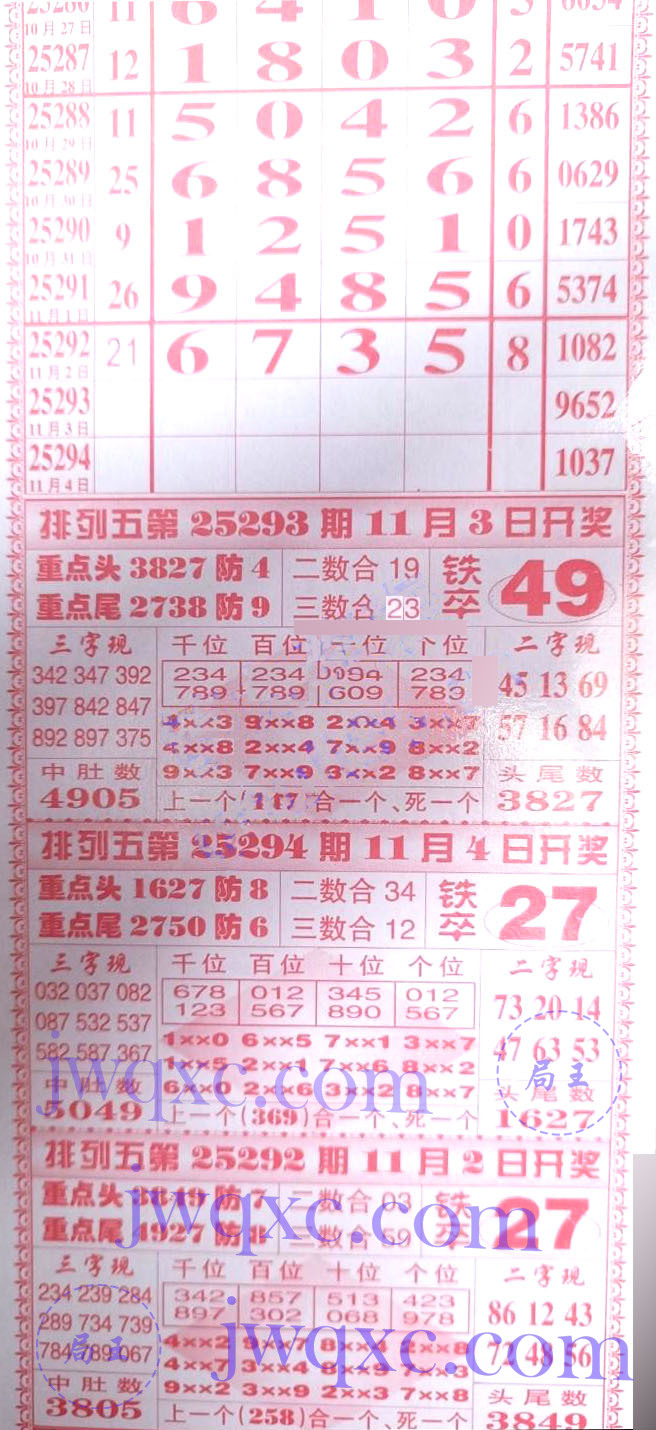 25286 11 8 4 1 0 3 6654
10月27日
25287 12 1 8 0 3 2 5741
10月28日
25288 11 5 0 4 2 6 1386
10月29日
25289 25 6 8 5 6 6 0629
10月30日
25290 9 1 2 5 1 0 1743
10月31日
25291 26 9 4 8 5 6 5374
11月1日
25292 21 6 7 3 5 8 1082
11月2日
25293 9652
11月3日
25294 1037
11月4日
排列五第 25293 期 11 月 3 日开奖
重点头 3827 防 4 二数合 19 铁卒 49
重点尾 2738 防 9 三数合 23
三字现 千位 百位 位 个位 二字现
342 347 392 234 234 234 45 13 69
397 842 847 789 789 609 789
4××3 9××8 2××4 3××7 57 16 84
892 897 375 4××8 2××4 7××9 8××2
中肚数 9××3 7××9 3××2 8××7 头尾数
4905 上一个(147)合一个、死一个 3827
排列五第 25294 期 11 月 4 日开奖
重点头 1627 防 8 二数合 34 铁卒 27
重点尾 2750 防 6 三数合 12
三字现 千位 百位 十位 个位 二字现
032 037 082 678 012 345 012 73 20 14
087 532 537 123 567 890 567
1××0 6××5 7××1 3××7 47 63 53
582 587 367 1××5 2××1 7××6 8××2
中肚数 6××0 2××6 3××2 8××7 头尾数
5049 上一个(369)合一个、死一个 1627
jwqxc.com
局王
排列五第 25292 期 11 月 2 日开奖
重点头 3849 防 7 二数合 03 铁卒 27
重点尾 4927 防 8 三数合 59
jwqxc.com
三字现 千位 百位 十位 个位 二字现
234 239 284 342 857 513 423 86 12 43
289 734 739 897 302 068 978
4××2 9××7 8××4 2××8
784 789 067 4××7 7××3 72 48 56
中肚数 9××2 3××9 2××3 7××8 头尾数
3805 上一个(258)合一个、死一个 3849
局王
jwqxc.com